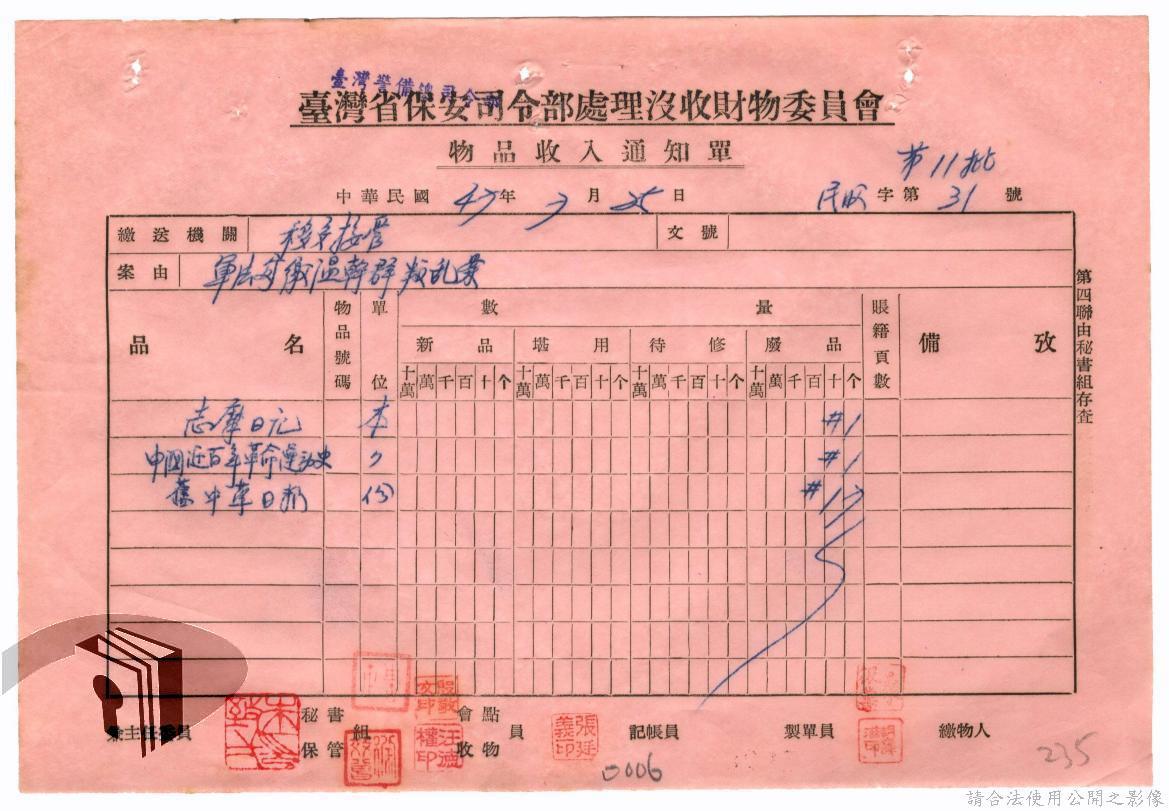 臺灣警備總司令部
臺灣省保安司令部處理沒收財物委員會
物品收入通知單
第11批
中華民國 47年 7月 25日 字第 31 號
繳送機關 移交接管 文號
案由 軍法 溫幹群叛乱案
品名 物品號碼 單位 數量 賬籍頁數 備攷
新品 堪用 待修 廢品
十萬 萬 千 百 十 个 十萬 萬 千 百 十 个 十萬 萬 千 百 十 个 十萬 萬 千 百 十 个
志摩日记 本 #1
中國近百年革命運动史 〃 #1
舊中華日報 份 #17
第四聯由秘書組存查
兼主任委員 秘書 保管 組 會點 收物 員 張廷義印 記帳員 製單員 繳物人
汪濃權印
0006
235
請合法使用公開之影像